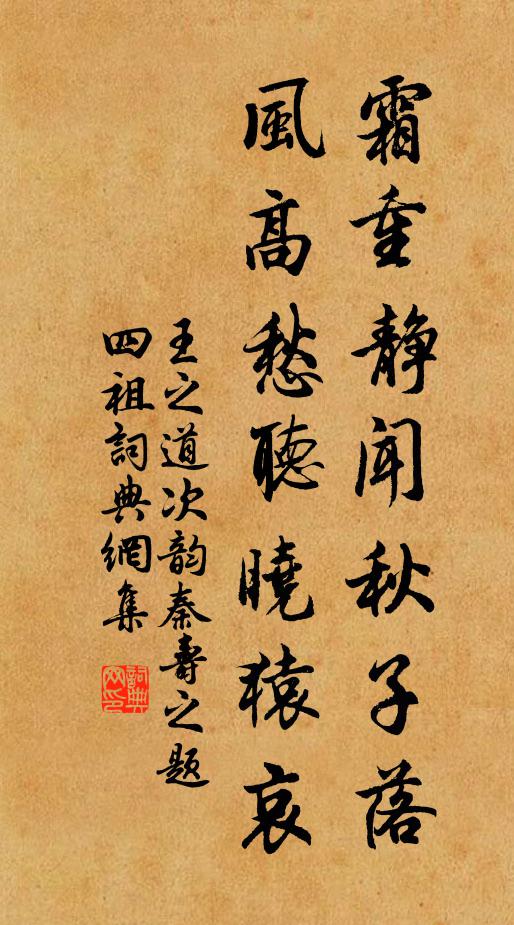 霜重静闻秋子落
風高愁聽曉猿哀
王之道次韵秦壽之题
四祖詞典網集
詞典
网印